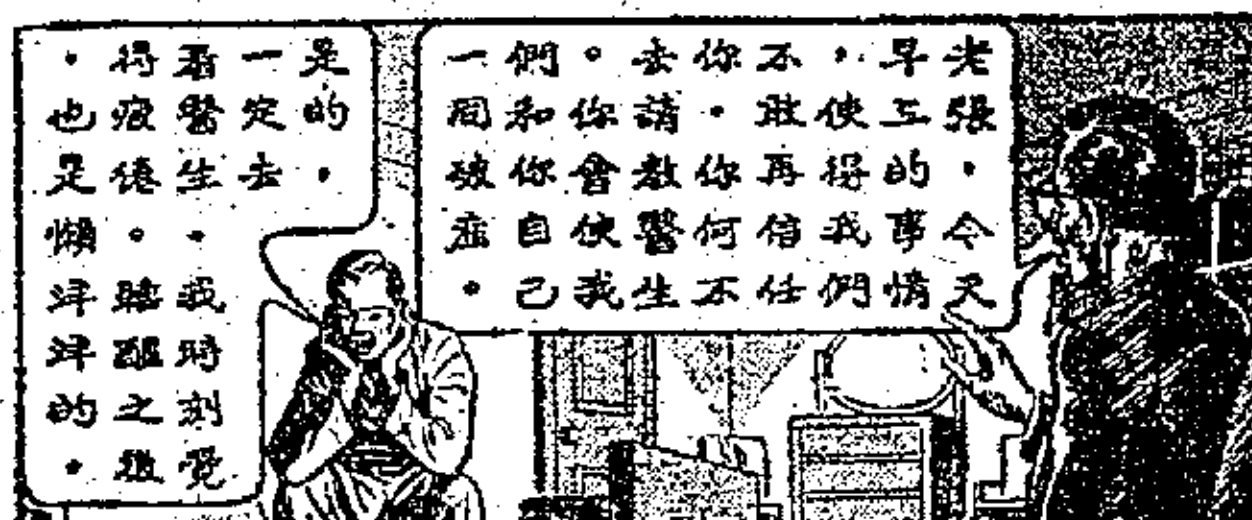 老張，今天
早工的事情
，使得我們
不敢再信任
你，你何不
去請教醫生
。你會使我
們和你自己
一同破產。
是的，
一定去
看醫生，我時刻覺
得疲倦。睡醒之後
，也是懶洋洋的。